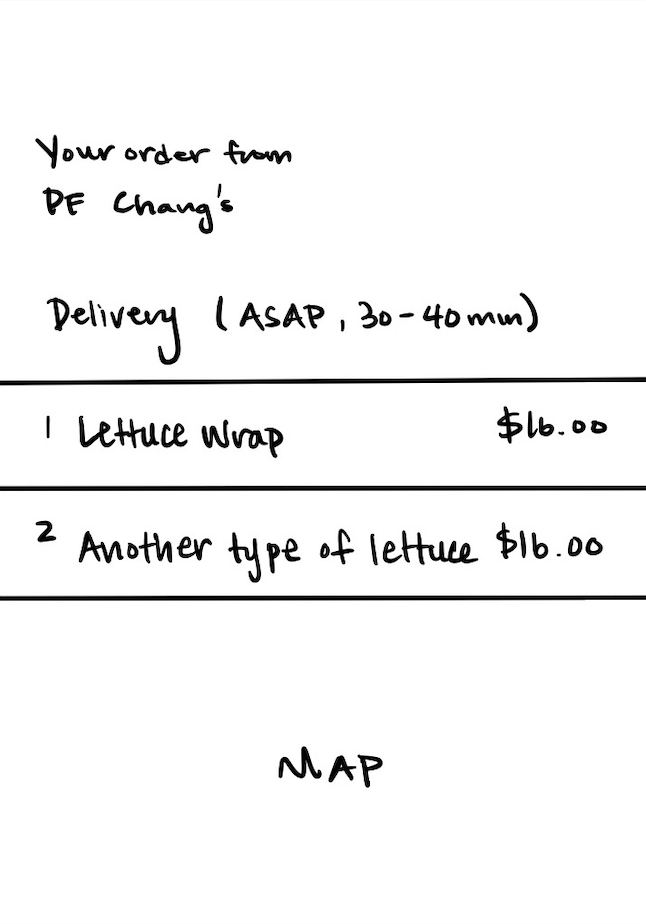 Your order from
PF Chang's
Delivery (ASAP, 30-40min)
1 Lettuce Wrap $16.00
2 Another type of lettuce $16.00
MAP